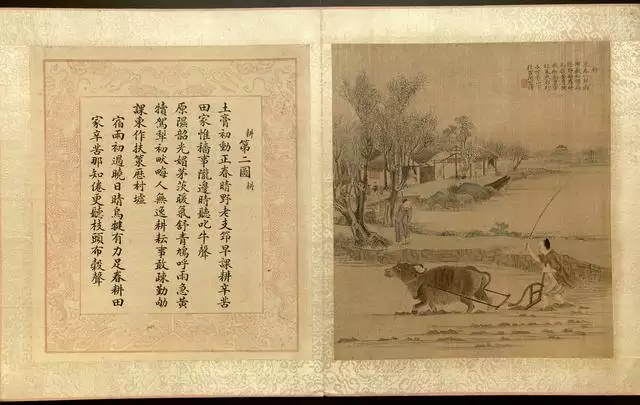 耕第二圖 耕
土膏初動正春晴野老支笻早課耕辛苦
田家惟穡事隴邊時聽叱牛聲
原隰韶光媚茅茨暖氣舒青鳩呼雨急黃
犢駕犂初畎畮人無逸耕耘事敢疎勤劬
課東作扶策歷村墟
宿雨初過曉日晴烏犍有力足春耕田
家辛苦那知倦更聽枝頭布穀聲
耕